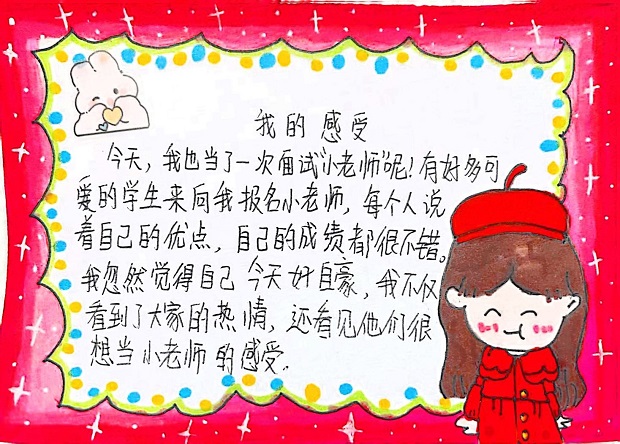 我的感受
今天，我也当了一次面试"小老师"呢！有好多可
爱的学生来向我报名小老师，每个人说
着自己的优点，自己的成绩都很不错。
我忽然觉得自己今天好自豪，我不仅
看到了大家的热情，还看见他们很
想当小老师的感受。